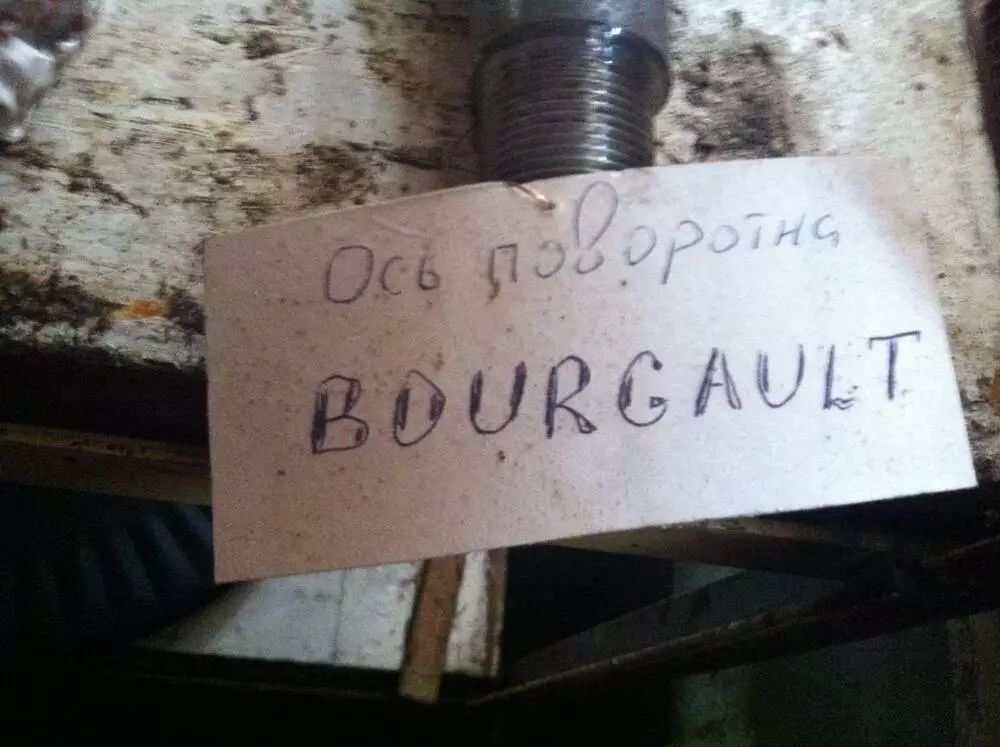 Ось поворотна
BOURGAULT